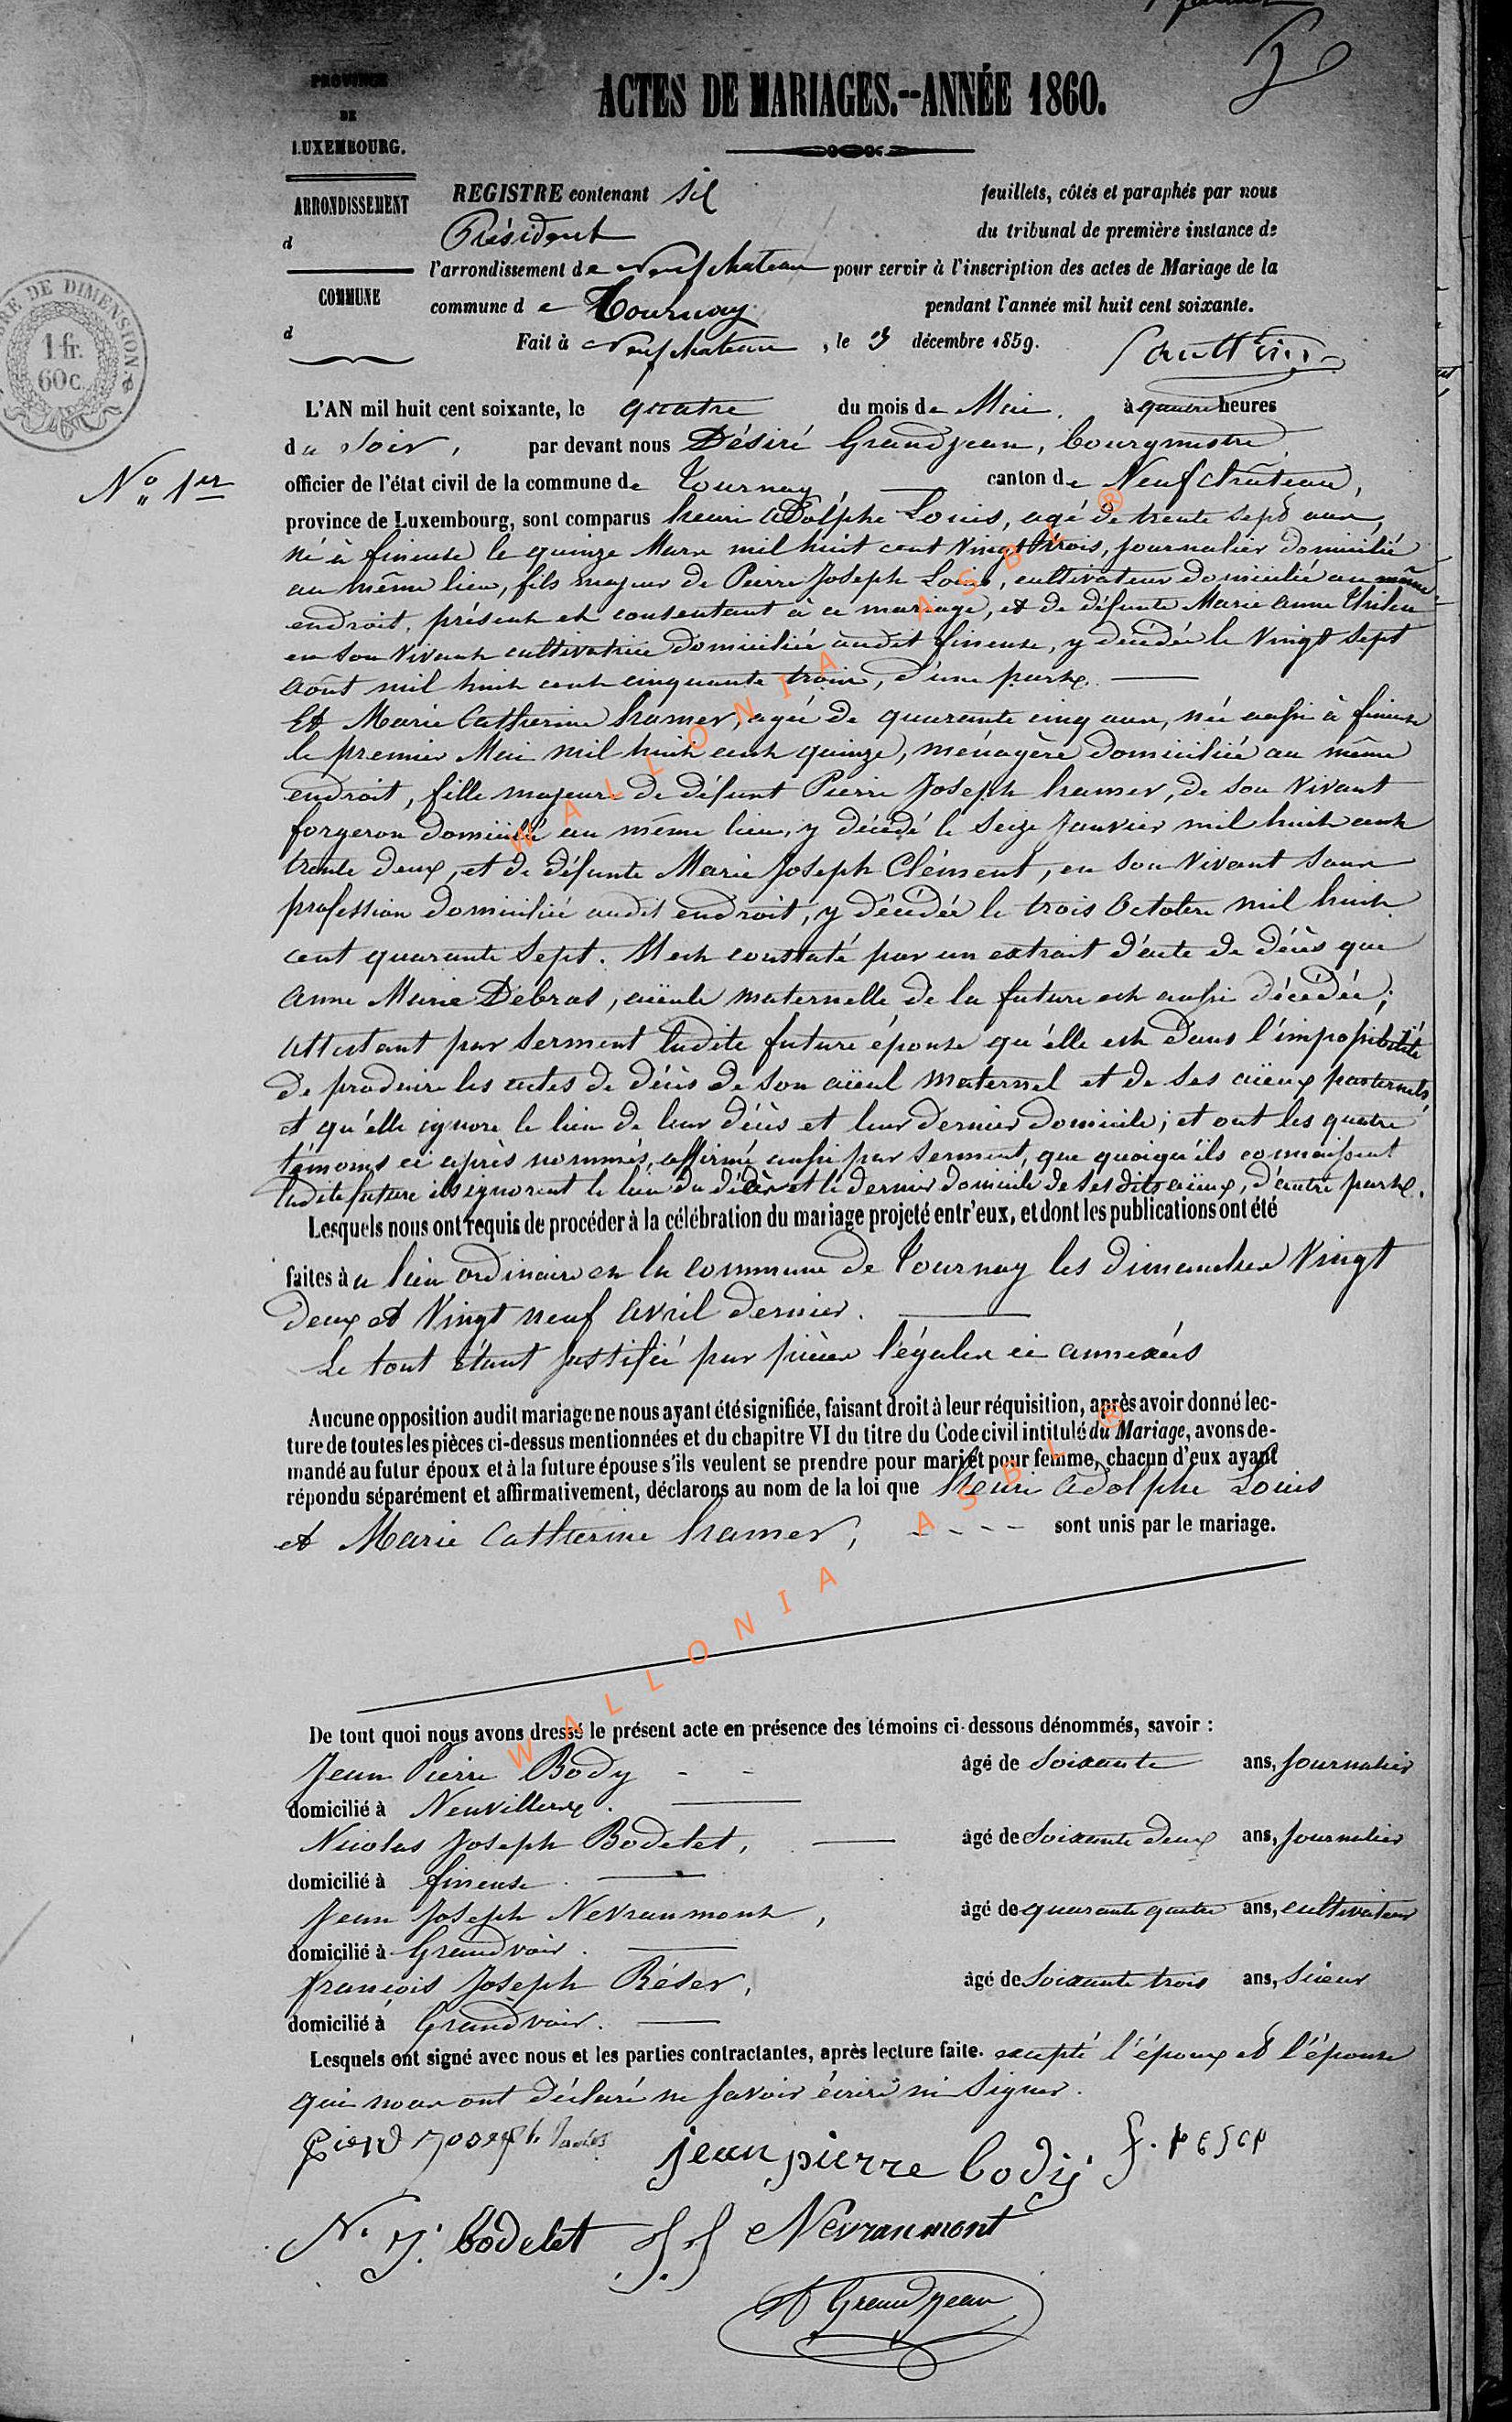 PROVINCE
DE
LUXEMBOURG.
ARRONDISSEMENT
d
COMMUNE
d
ACTES DE MARIAGES.--ANNÉE 1860.
REGISTRE contenant six feuillets, côtés et paraphés par nous
Président du tribunal de première instance de
l'arrondissement de Neufchateau pour servir à l'inscription des actes de Mariage de la
commune de Tournay pendant l'année mil huit cent soixante.
Fait à Neufchateau, le 3 décembre 1859.
TIMBRE DE DIMENSION
1 fr.
60 c.
N° 1er
L'AN mil huit cent soixante, le quatre du mois de Mai à quatre heures
du soir, par devant nous Désiré Grandjean, bourgmestre
officier de l'état civil de la commune de Tournay canton de Neufchâteau,
province de Luxembourg, sont comparus henri adolphe Louis, agé de trente sept ans,
né à fineuse le quinze Mars mil huit cent vingt trois, journalier domicilié
au même lieu, fils majeur de Pierre Joseph Louis, cultivateur domicilié au même
endroit, présent et consentant à ce mariage, et de défunte Marie anne
en son vivant cultivatrice domiciliée audit fineuse, y décédée le vingt sept
août mil huit cent cinquante trois, d'une part.
Et Marie Catherine hamer, agée de quarante cinq ans, née aussi à fineuse
le premier Mai mil huit cent quinze, ménagère domiciliée au même
endroit, fille majeure de défunt Pierre Joseph hamer, de son vivant
forgeron domicilié au même lieu, y décédé le seize janvier mil huit cent
trente deux, et de défunte Marie Joseph Clément, en son vivant sans
profession domiciliée audit endroit, y décédée le trois Octobre mil huit
cent quarante sept. Il est constaté par un extrait d'acte de décès que
anne Marie Debras, aïeule maternelle de la future est aussi décédée;
attestant par serment ladite future épouse qu'elle est dans l'impossibilité
de produire les actes de décès de son aïeul maternel et de ses aïeux paternels,
et qu'elle ignore le lieu de leur décès et leur dernier domicile; et ont les quatre
témoins ci après nommés, affirmé aussi par serment, que quoiqu'ils connaissent
ladite future ils ignorent le lieu du décès et le dernier domicile de ses dits aïeux, d'autre part.
Lesquels nous ont requis de procéder à la célébration du mariage projeté entr'eux, et dont les publications ont été
faites au lieu ordinaire en la commune de Tournay les dimanches vingt
deux et vingt neuf avril dernier.
Le tout étant justifié par pièces légales ci annexées
Aucune opposition audit mariage ne nous ayant été signifiée, faisant droit à leur réquisition, après avoir donné lec-
ture de toutes les pièces ci-dessus mentionnées et du chapitre VI du titre du Code civil intitulé du Mariage, avons de-
mandé au futur époux et à la future épouse s'ils veulent se prendre pour mari et pour femme, chacun d'eux ayant
répondu séparément et affirmativement, déclarons au nom de la loi que henri adolphe Louis
et Marie Catherine hamer, - - - - sont unis par le mariage.
De tout quoi nous avons dressé le présent acte en présence des témoins ci-dessous dénommés, savoir :
Jean Pierre Body - - âgé de soixante ans, journalier
domicilié à Neuvillers.
Nicolas Joseph Bodelet, âgé de soixante deux ans, journalier
domicilié à fineuse.
Jean Joseph Nevraumont, âgé de quarante quatre ans, cultivateur
domicilié à Grandvoir.
françois Joseph Réser, âgé de soixante trois ans, scieur
domicilié à Grandvoir.
Lesquels ont signé avec nous et les parties contractantes, après lecture faite. excepté l'époux et l'épouse
qui nous ont déclaré ne savoir écrire ni signer.
jean pierre body
N. J. bodelet J J Nevraumont
D Grandjean
WALLONIA ASBL ®
WALLONIA ASBL ®